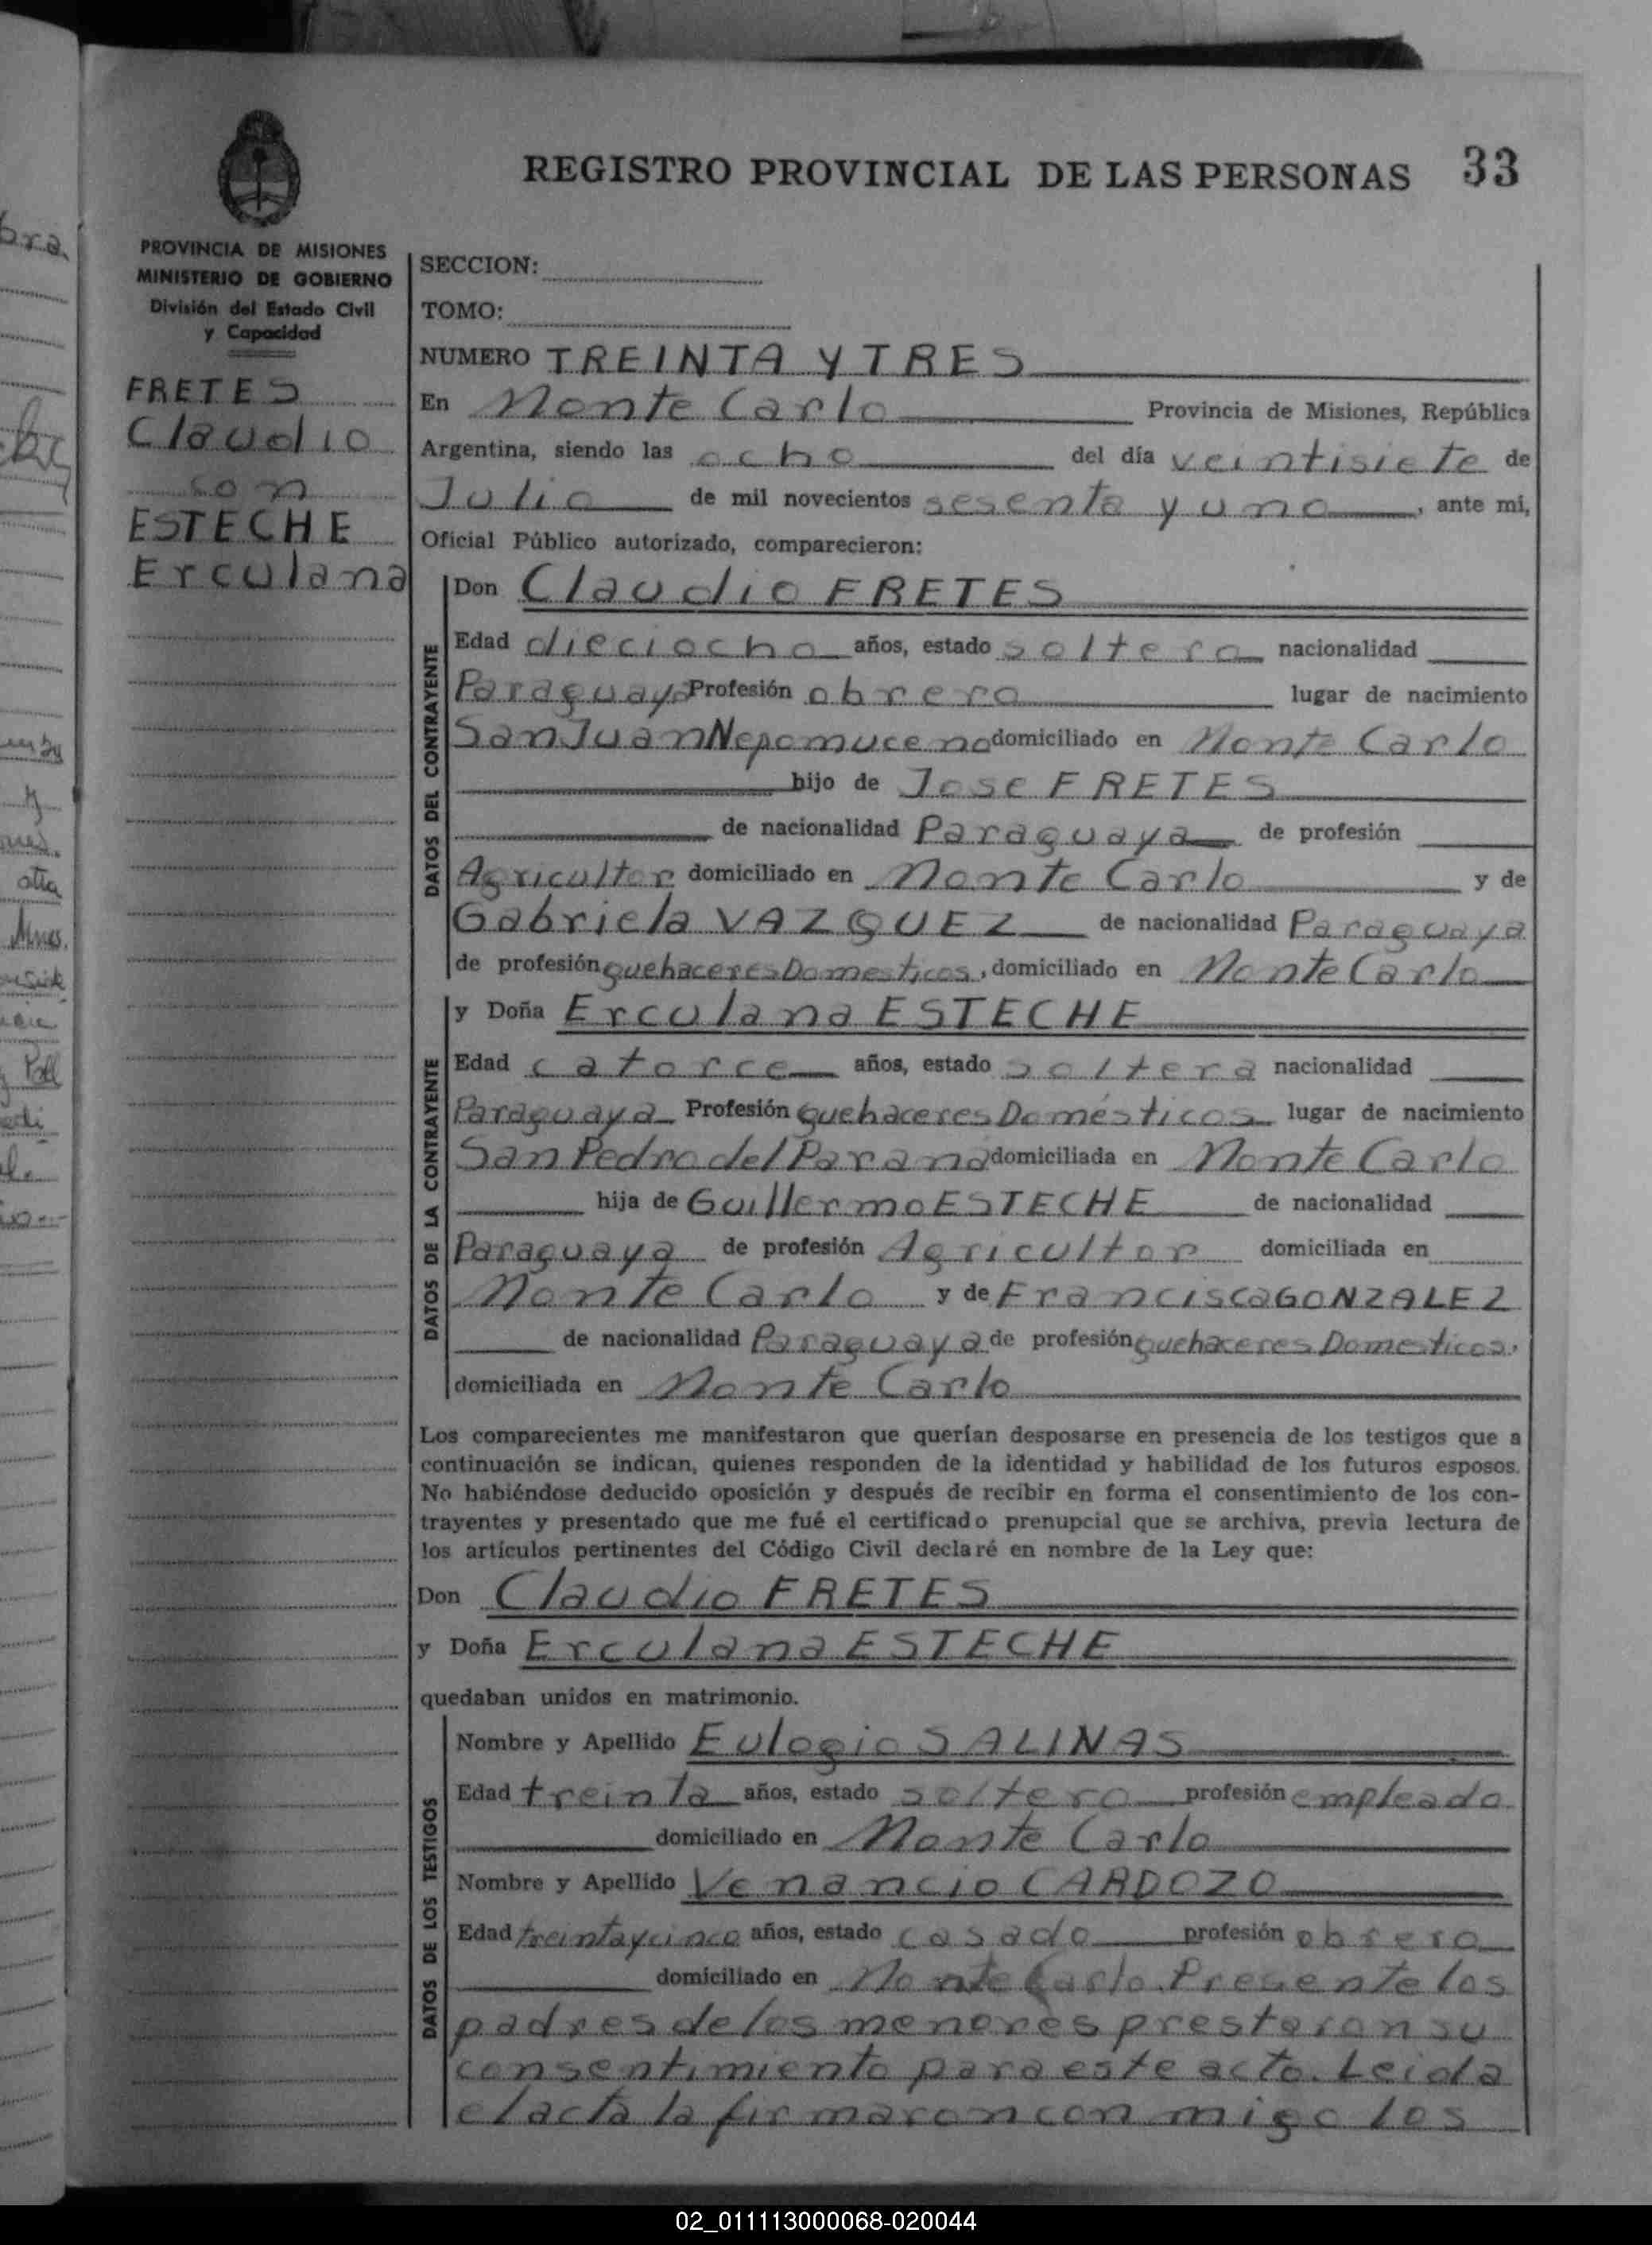 REGISTRO PROVINCIAL DE LAS PERSONAS 33
PROVINCIA DE MISIONES
MINISTERIO DE GOBIERNO
División del Estado Civil
y Capacidad
FRETES
Claudio
con
ESTECHE
Erculana
SECCION:
TOMO:
NUMERO TREINTA Y TRES
En Monte Carlo Provincia de Misiones, República
Argentina, siendo las ocho del día veintisiete de
Julio de mil novecientos sesenta y uno, ante mi,
Oficial Público autorizado, comparecieron:
DATOS DEL CONTRAYENTE
Don Claudio FRETES
Edad dieciocho años, estado soltero nacionalidad
Paraguaya Profesión obrero lugar de nacimiento
San Juan Nepomuceno domiciliado en Monte Carlo
hijo de Jose FRETES
de nacionalidad Paraguaya de profesión
Agricultor domiciliado en Monte Carlo y de
Gabriela VAZQUEZ de nacionalidad Paraguaya
de profesión quehaceres Domesticos, domiciliado en Monte Carlo
DATOS DE LA CONTRAYENTE
y Doña Erculana ESTECHE
Edad catorce años, estado soltera nacionalidad
Paraguaya Profesión quehaceres Domésticos lugar de nacimiento
San Pedro del Parana domiciliada en Monte Carlo
hija de Guillermo ESTECHE de nacionalidad
Paraguaya de profesión Agricultor domiciliada en
Monte Carlo y de Francisca GONZALEZ
de nacionalidad Paraguaya de profesión quehaceres Domesticos,
domiciliada en Monte Carlo
Los comparecientes me manifestaron que querían desposarse en presencia de los testigos que a
continuación se indican, quienes responden de la identidad y habilidad de los futuros esposos.
No habiéndose deducido oposición y después de recibir en forma el consentimiento de los con-
trayentes y presentado que me fué el certificado prenupcial que se archiva, previa lectura de
los artículos pertinentes del Código Civil declaré en nombre de la Ley que:
Don Claudio FRETES
y Doña Erculana ESTECHE
quedaban unidos en matrimonio.
DATOS DE LOS TESTIGOS
Nombre y Apellido Eulogio SALINAS
Edad treinta años, estado soltero profesión empleado
domiciliado en Monte Carlo
Nombre y Apellido Venancio CARDOZO
Edad treintaycinco años, estado casado profesión obrero
domiciliado en Monte Carlo. Presente los
padres de los menores prestaron su
consentimiento para este acto. Leida
el acta la firmaron conmigo los
02_011113000068-020044